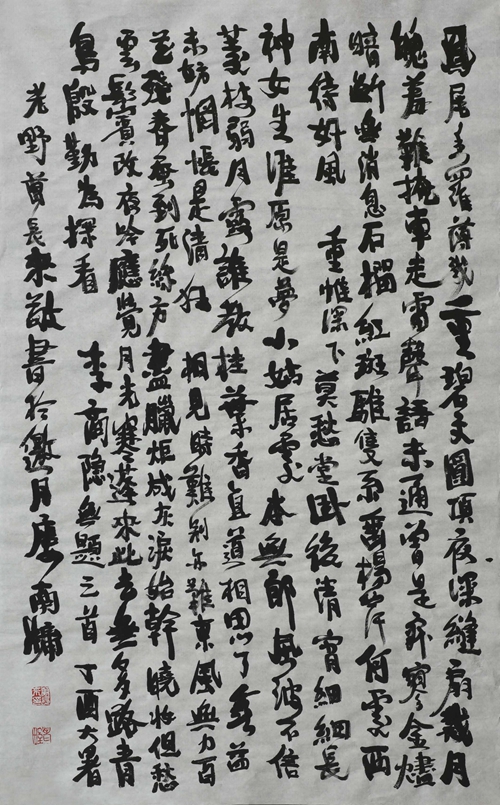 鳳尾香羅薄幾重碧文圓頂夜深縫扇裁月
魄羞難掩車走雷聲語未通曾是寂寥金燼
暗斷無消息石榴紅斑騅隻系垂楊岸何處西
南待好風 重帷深下莫愁堂卧後清宵細細長
神女生涯原是夢小姑居處本無郎風波不信
菱枝弱月露誰教桂葉香直道相思了無益
未妨惆悵是清狂 相見時難別亦難東風無力百
花殘春蠶到死絲方盡臘炬成灰淚始幹曉妝但愁
雲鬢改夜吟應覺月光寒蓬來此去無多路青
鳥殷勤為探看 李商隱無題三首丁酉大暑
老野 書於邀月廬南牖